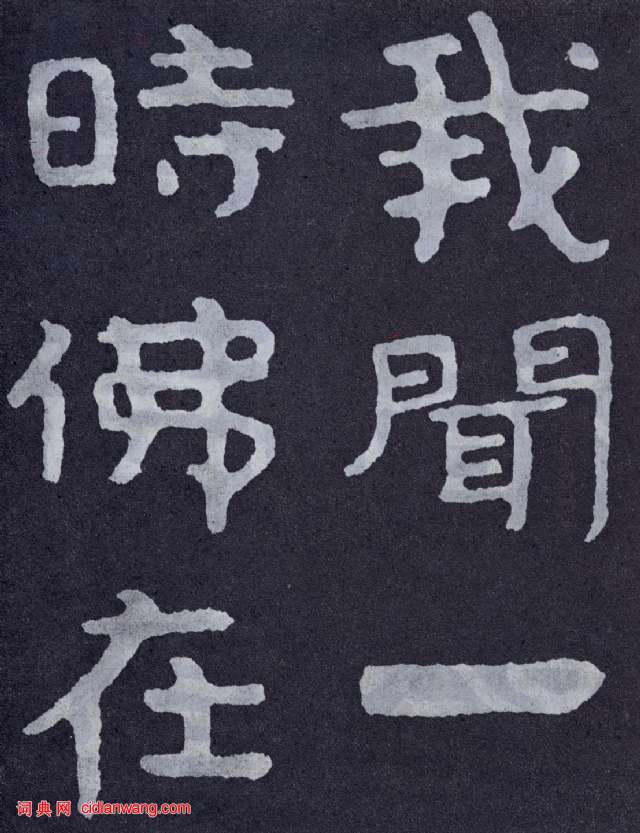 我聞一
時佛在
词典网 cidianwang.com